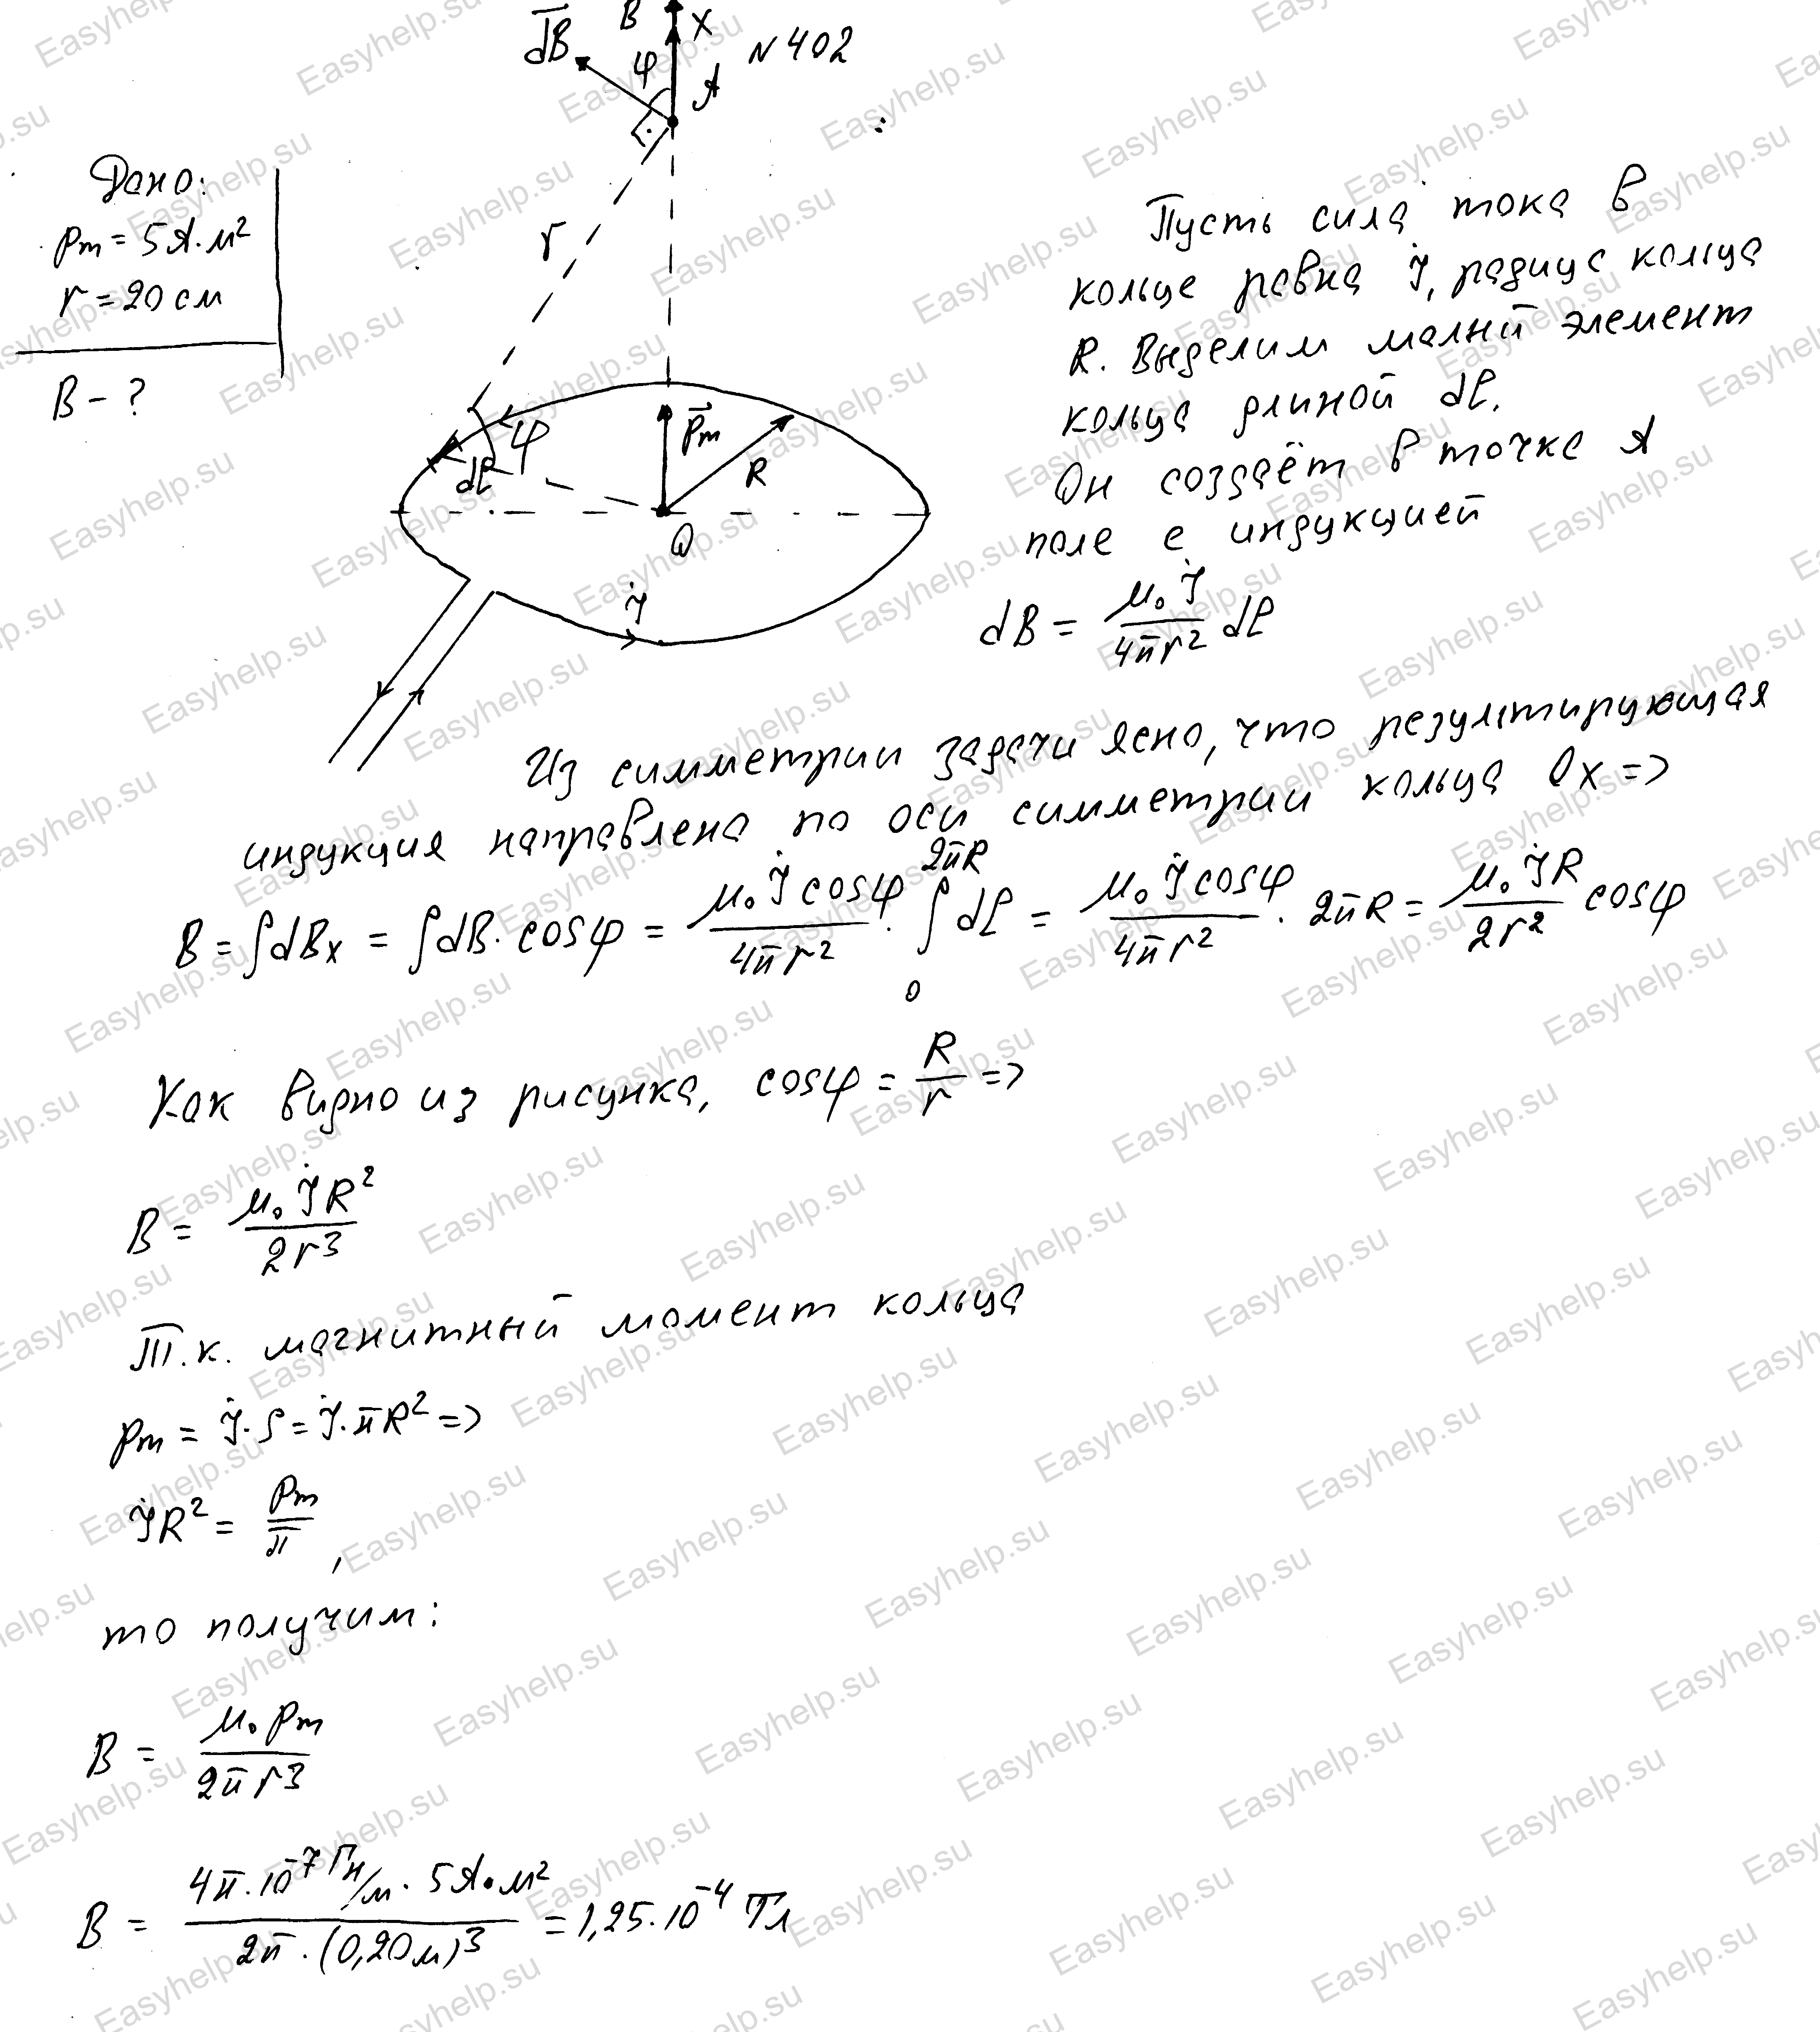 N 402
dB
B
X
φ
A
Дано:
pm = 5 А·м²
r = 20 см
B - ?
r
φ
dl
pm
R
O
I
Пусть сила тока в
кольце равна I, радиус кольца
R. Выделим малый элемент
кольца длиной dl.
Он создаёт в точке A
поле с индукцией
dB = μ₀I/4πr² dl
Из симметрии задачи ясно, что результирующая
индукция направлена по оси симметрии кольца Ox =>
B = ∫dBx = ∫dB·cosφ = μ₀I cosφ/4πr² · ∫₀^2πR dl = μ₀I cosφ/4πr² · 2πR = μ₀IR/2r² cosφ
Как видно из рисунка, cosφ = R/r =>
B = μ₀IR²/2r³
Т.к. магнитный момент кольца
pm = I·S = I·πR² =>
IR² = pm/π,
то получим:
B = μ₀pm/2πr³
B = 4π·10⁻⁷ Гн/м · 5 А·м²/2π·(0,20 м)³ = 1,25·10⁻⁴ Тл
Easyhelp.su